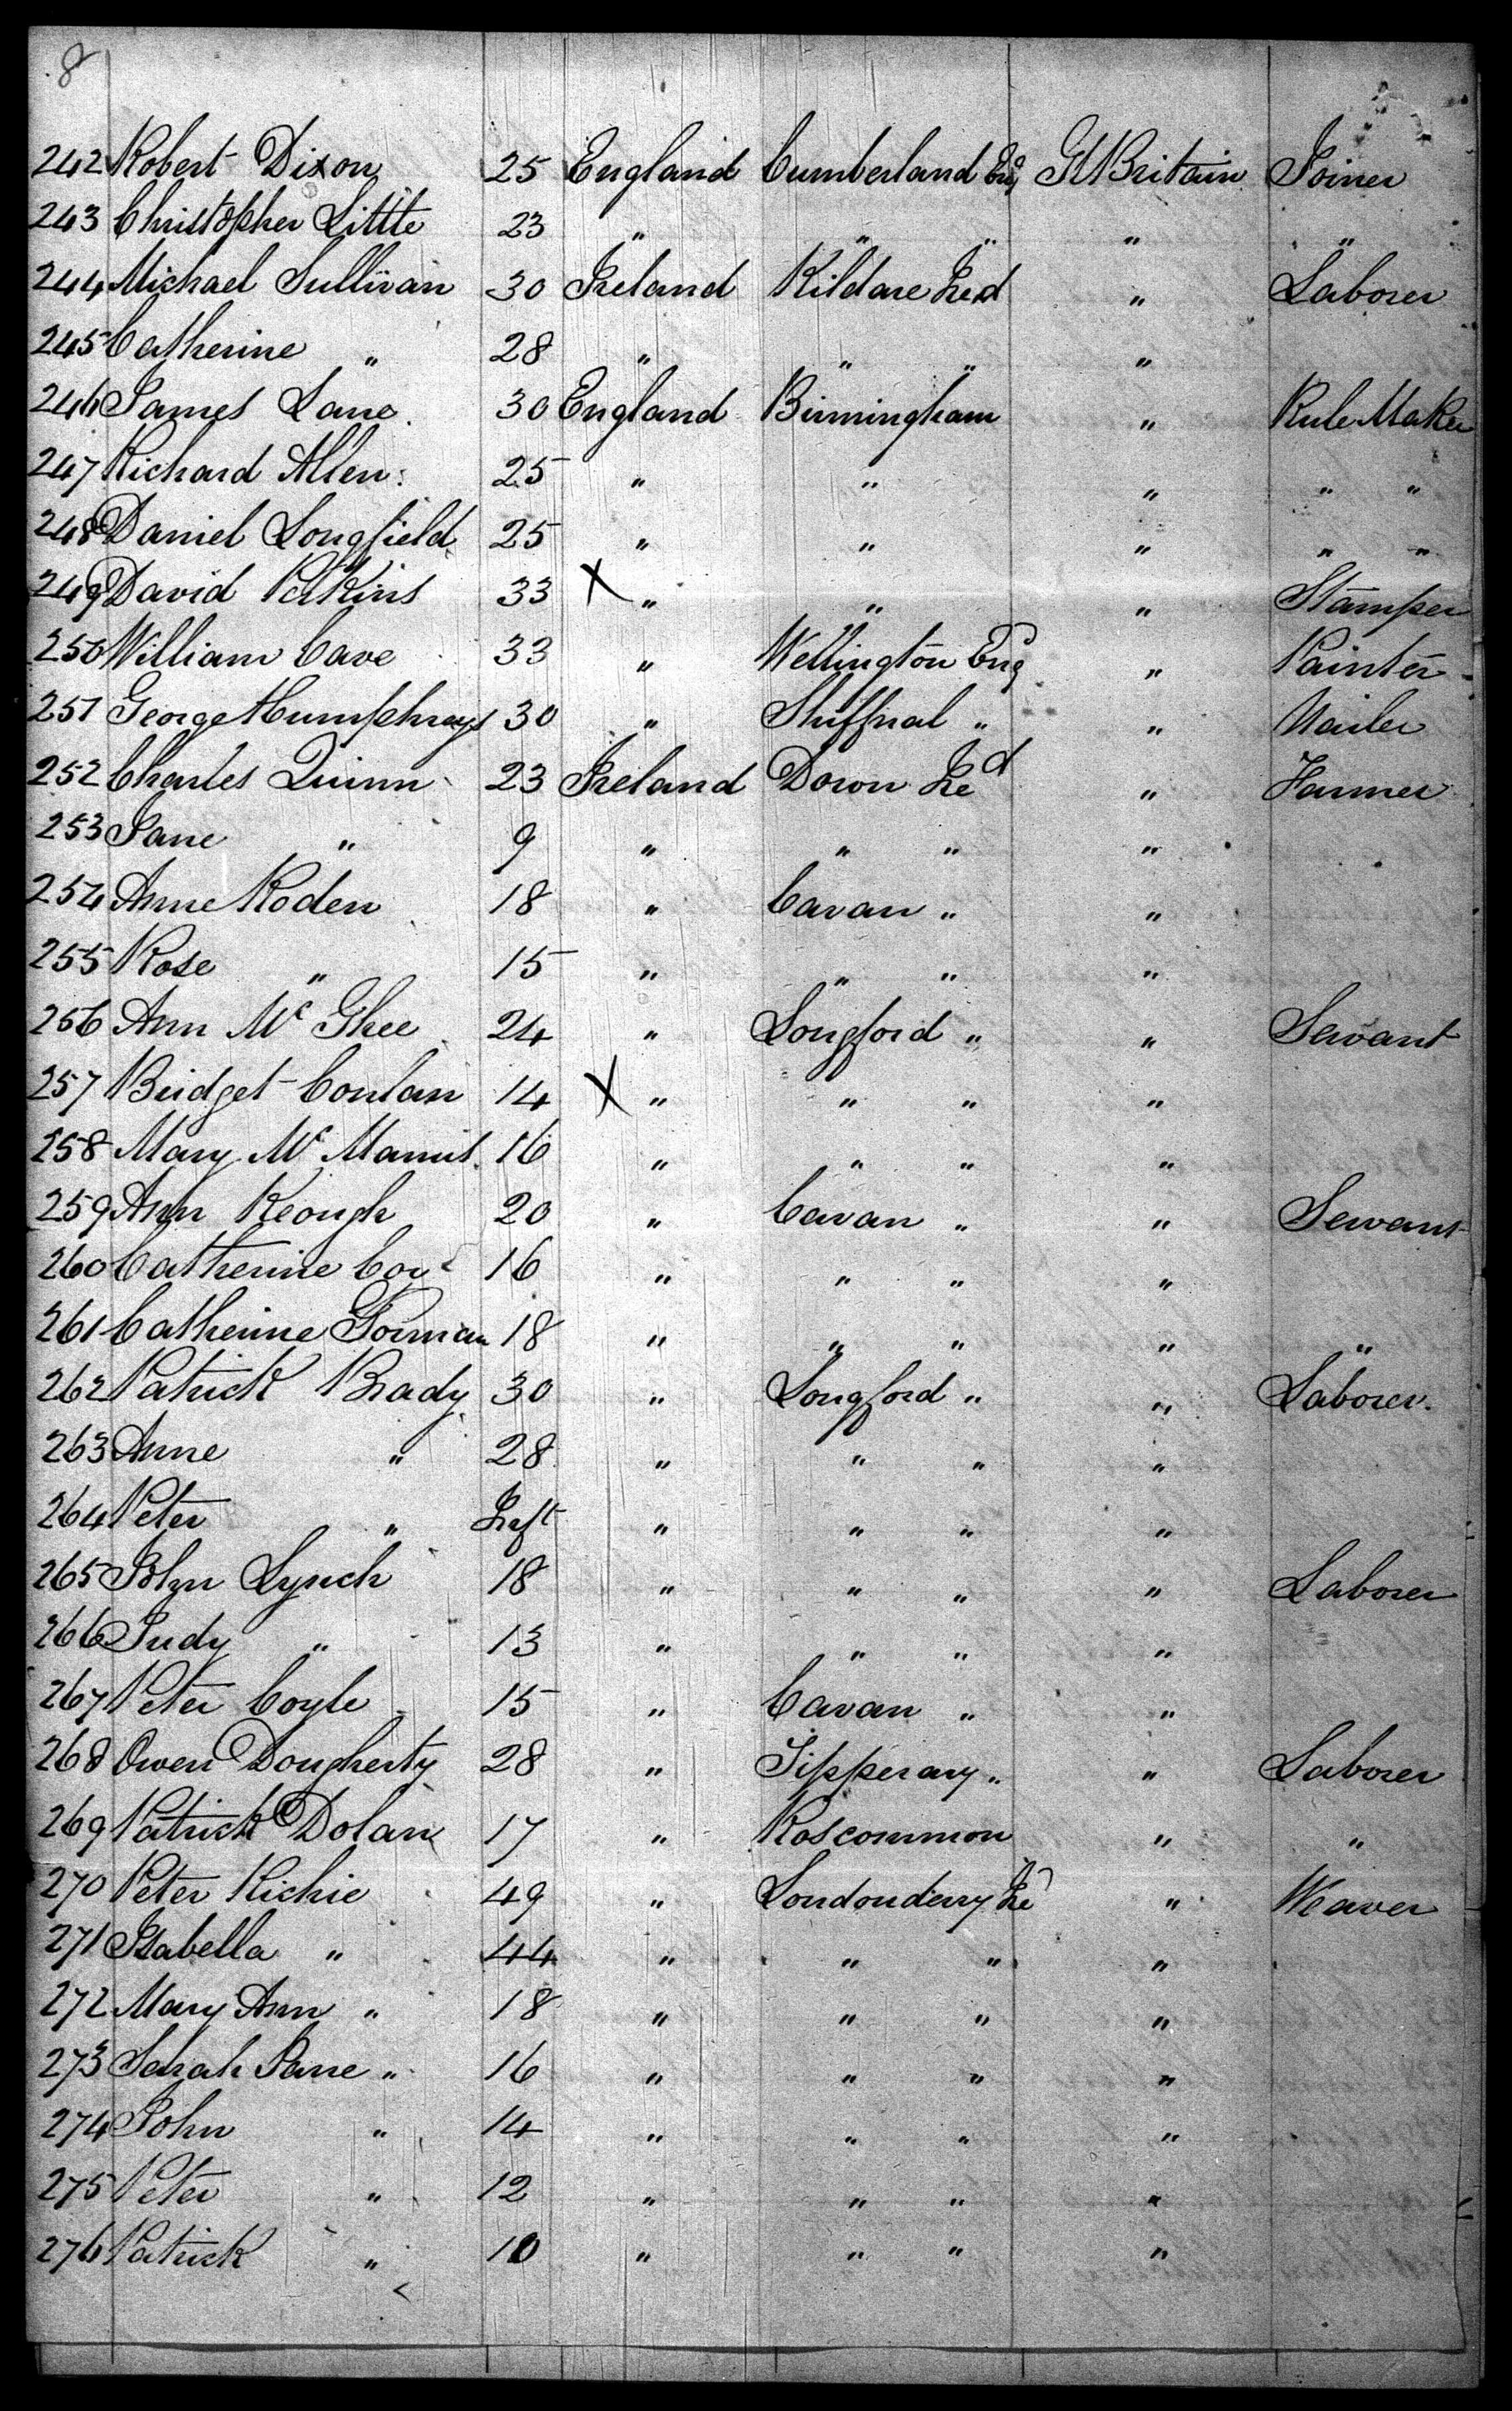 8
242 Robert Dixon 25 England Cumberland Eng Gt Britain Joiner
243 Christopher Little 23 " " " " "
244 Michael Sullivan 30 Ireland Kildare Ired " Laborer
245 Catherine " 28 " " " "
246 James Lane 30 England Birmingham " Rule Maker
247 Richard Allen 25 " " " " "
248 Daniel Longfield 25 " " " " "
249 David 33 X " " " Stamper
250 William Cave 33 " Wellington Eng " Painter
251 George Humphreys 30 " Shiffnal " " Nailer
252 Charles Quinn 23 Ireland Down Ired " Farmer
253 Jane " 9 " " " "
254 Anne Roden 18 " Cavan " "
255 Rose " 15 " " " "
256 Ann McGhee 24 " Longford " " Servant
257 Bridget Conlan 14 X " " " "
258 Mary McManus 16 " " " "
259 Ann Keough 20 " Cavan " " Servant
260 Catherine Coy 16 " " " "
261 Catherine Gorman 18 " " " " "
262 Patrick Brady 30 " Longford " " Laborer
263 Anne " 28 " " " "
264 Peter " Inft " " " "
265 John Lynch 18 " " " " Laborer
266 Judy " 13 " " " "
267 Peter Coyle 15 " Cavan " "
268 Owen Dougherty 28 " Tipperary " " Laborer
269 Patrick Dolan 17 " Roscommon " "
270 Peter Richie 49 " Londonderry Ire " Weaver
271 Isabella " 44 " " " "
272 Mary Ann " 18 " " " "
273 Sarah Jane " 16 " " " "
274 John " 14 " " " "
275 Peter " 12 " " " "
276 Patrick " 10 " " " "